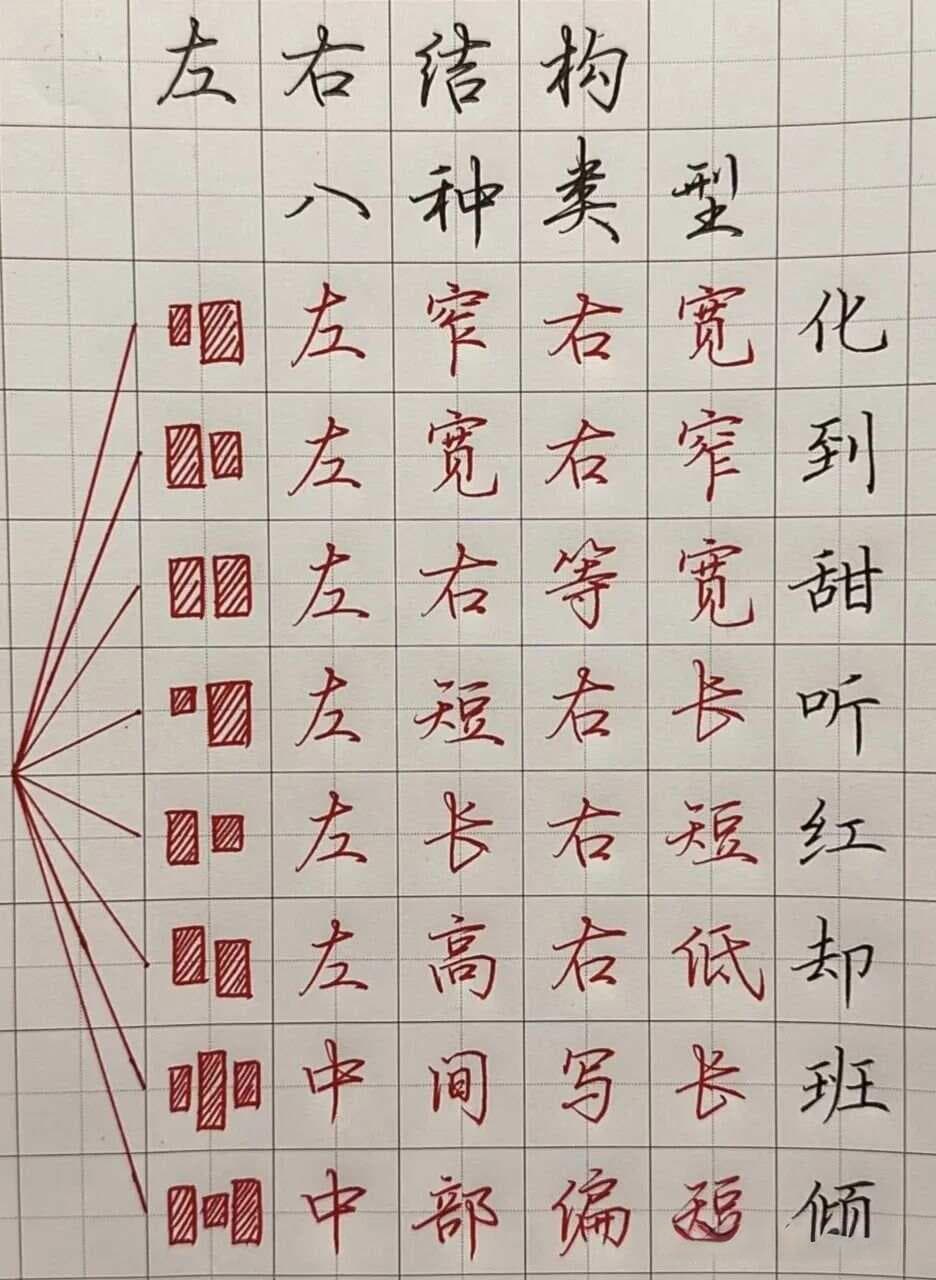 左右结构
八种类型
左窄右宽化
左宽右窄到
左右等宽甜
左短右长听
左长右短红
左高右低却
中间写长班
中部偏短倾